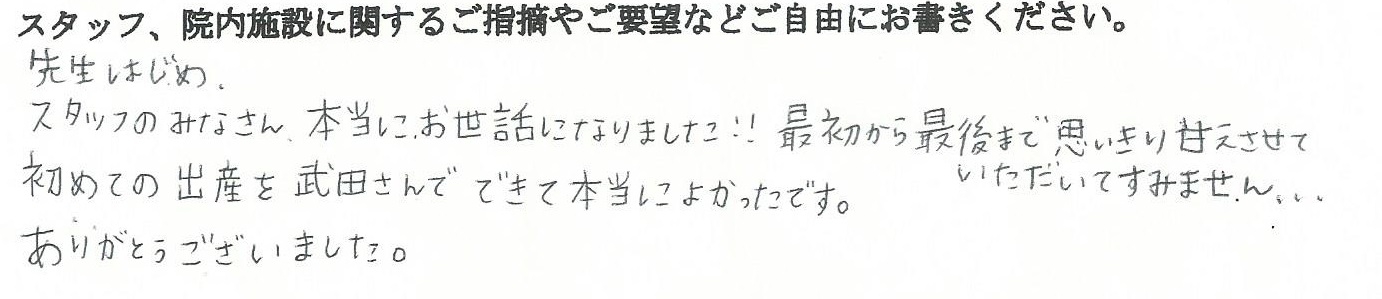 スタッフ、院内施設に関するご指摘やご要望などご自由にお書きください。
先生はじめ、
スタッフのみなさん、本当にお世話になりました!! 最初から最後まで思いきり甘えさせて
いただいてすみません...
初めての出産を武田さんでできて本当によかったです。
ありがとうございました。